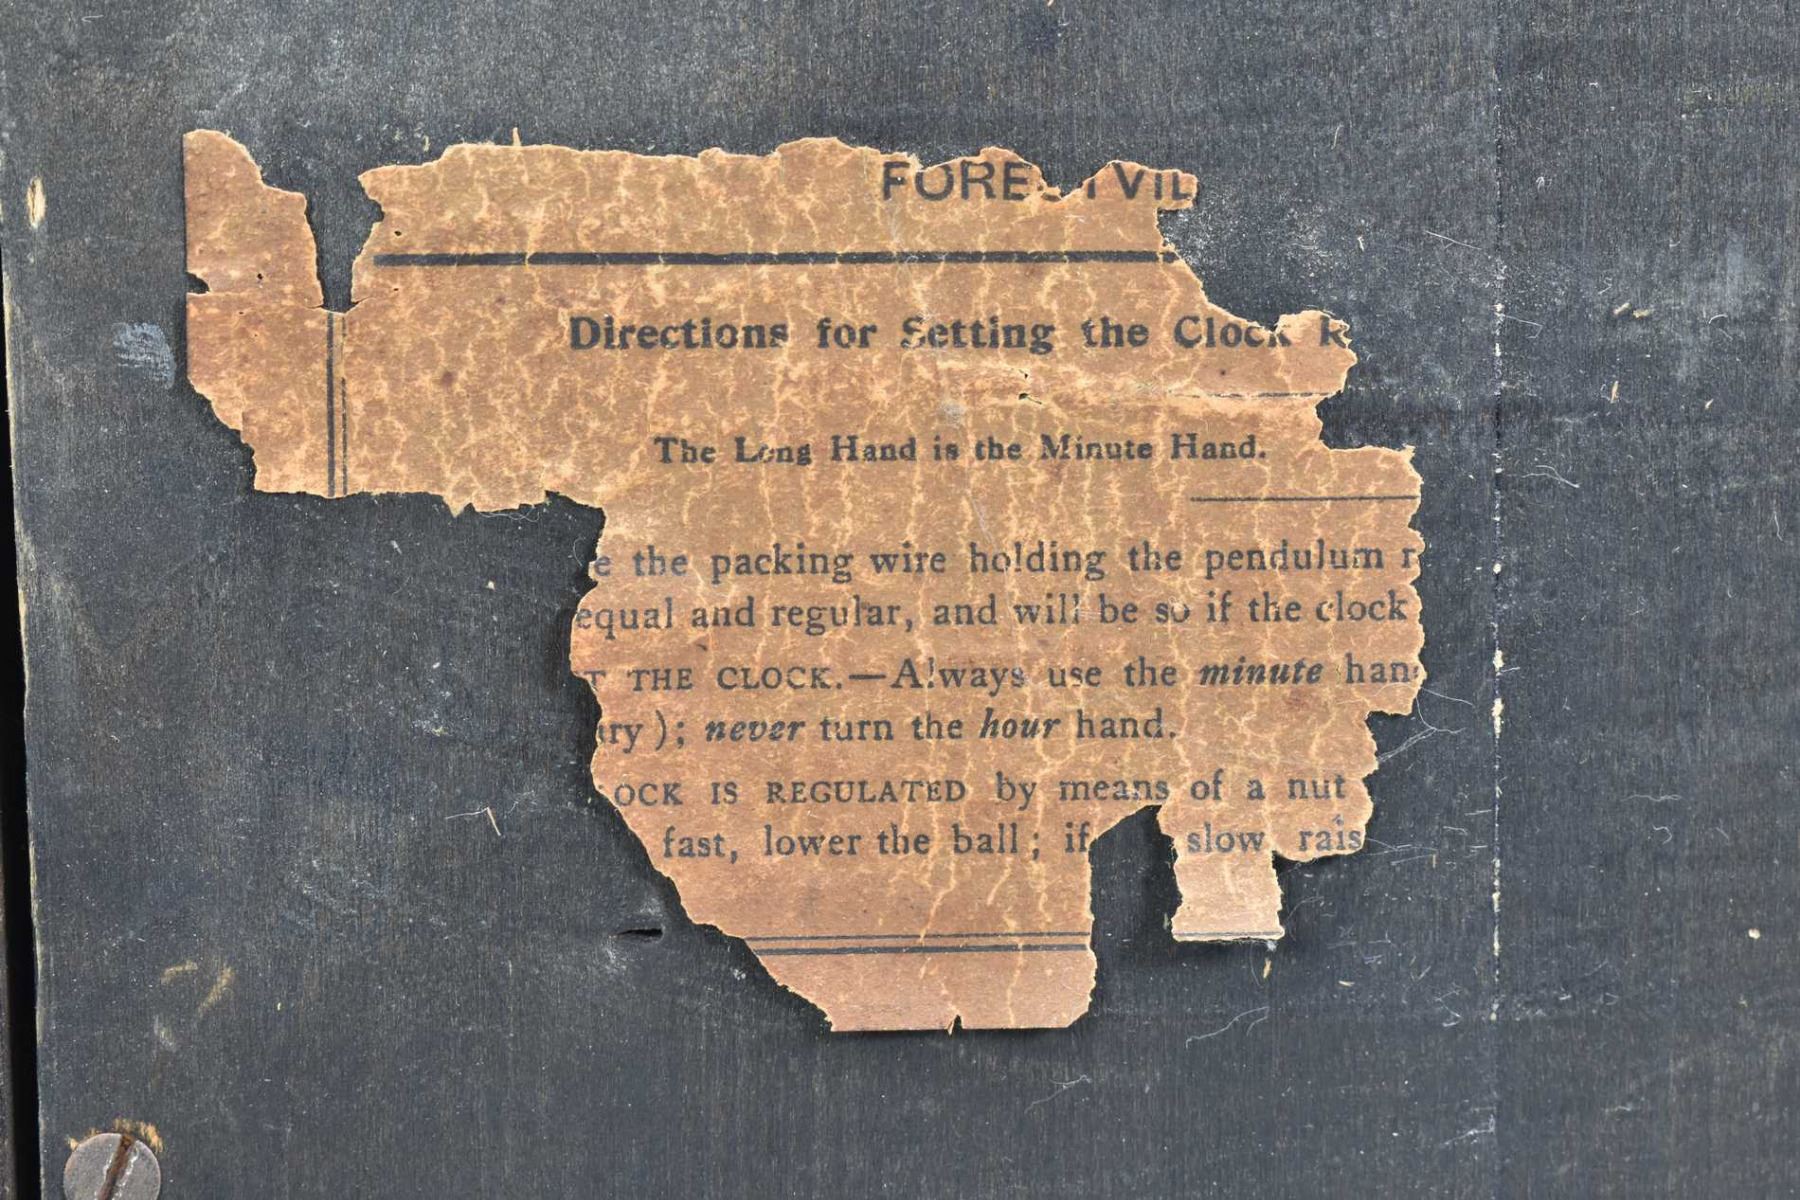 FORESTVIL
Directions for Setting the Clock R
The Long Hand is the Minute Hand.
e the packing wire holding the pendulum r
equal and regular, and will be so if the clock
T THE CLOCK.—Always use the minute han
ry); never turn the hour hand.
OCK IS REGULATED by means of a nut
fast, lower the ball; if slow rais